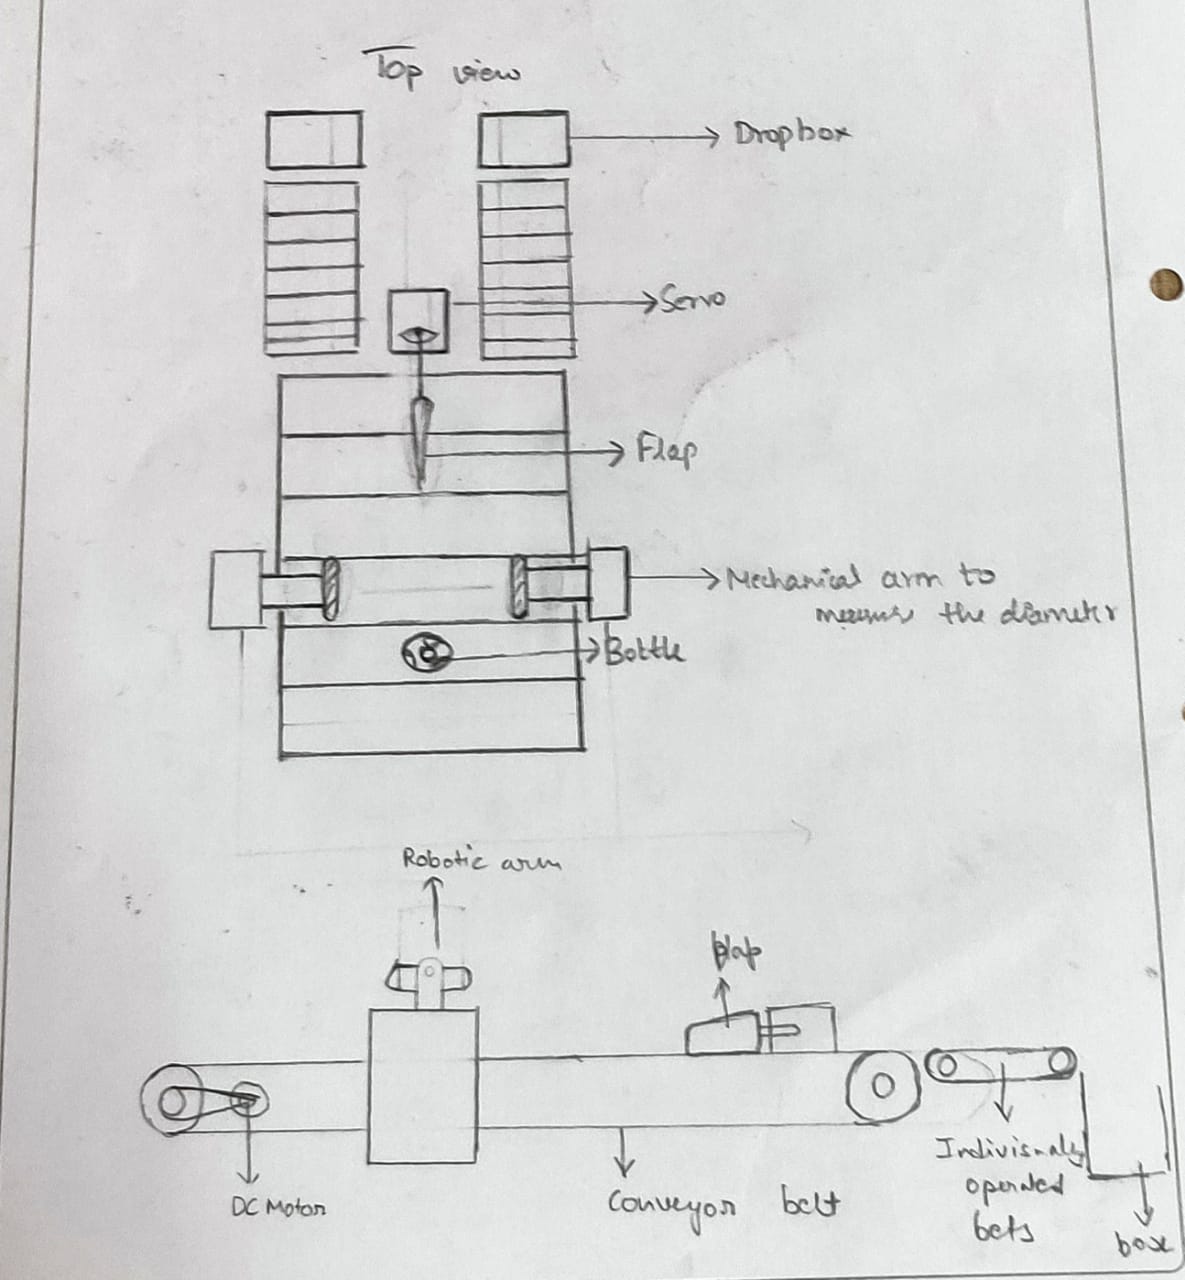 Top view
Dropbox
Servo
Flap
Mechanical arm to
the diameter
Bottle
Robotic arm
flap
DC Motor
Conveyor belt
operated
box